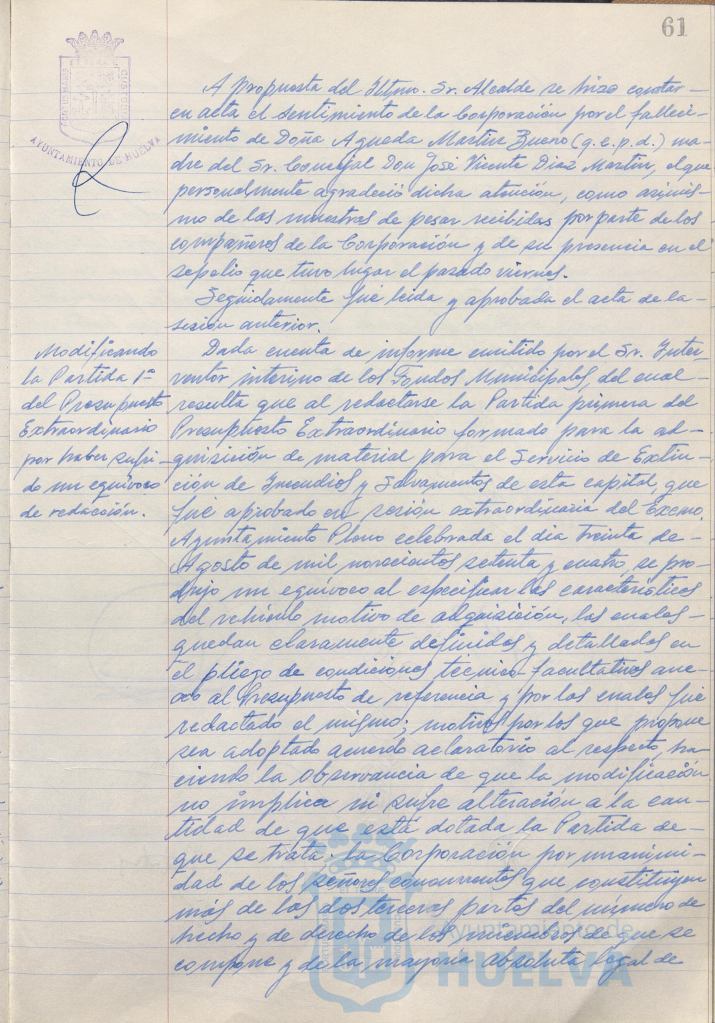 61
AYUNTAMIENTO DE HUELVA
A propuesta del Iltmo. Sr. Alcalde se hizo constar
en acta el sentimiento de la Corporación por el falleci-
miento de Doña Agueda Martin Bueno (q.e.p.d.) ma-
dre del Sr. Concejal Don José Vicente Diaz Martin, el que
personalmente agradeció dicha atención, como asimis-
mo de las muestras de pesar recibidas por parte de los
compañeros de la Corporación y de su presencia en el
sepelio que tuvo lugar el pasado viernes.
Seguidamente fué leida y aprobada el acta de la-
sesión anterior.
Modificando
la Partida 1ª
del Presupuesto
Extraordinario
por haber sufri-
do un equívoco
de redacción.
Dada cuenta de informe emitido por el Sr. Inter-
ventor interino de los Fondos Municipales, del cual-
resulta que al redactarse la Partida primera del
Presupuesto Extraordinario formado para la ad-
quisición de material para el Servicio de Extin-
ción de Incendios y Salvamentos de esta capital, que
fué aprobado en sesión extraordinaria del Excmo.
Ayuntamiento Pleno celebrada el dia treinta de-
Agosto de mil novecientos setenta y cuatro, se pro-
dujo un equívoco al especificar las características
del vehículo motivo de adquisición, las cuales-
quedan claramente definidas y detalladas en
el pliego de condiciones técnico-facultativas ane-
xo al Presupuesto de referencia y por las cuales fué
redactado el mismo; motivos por los que propone
sea adoptado acuerdo aclaratorio al respecto, ha-
ciendo la observancia de que la modificación
no implica ni sufre alteración a la can-
tidad de que está dotada la Partida de-
que se trata. La Corporación por unanimi-
dad de los señores concurrentes que constituyen
más de las dos terceras partes del número de
hecho y de derecho de los miembros de que se
compone y de la mayoria absoluta legal de
Ayuntamiento de
HUELVA